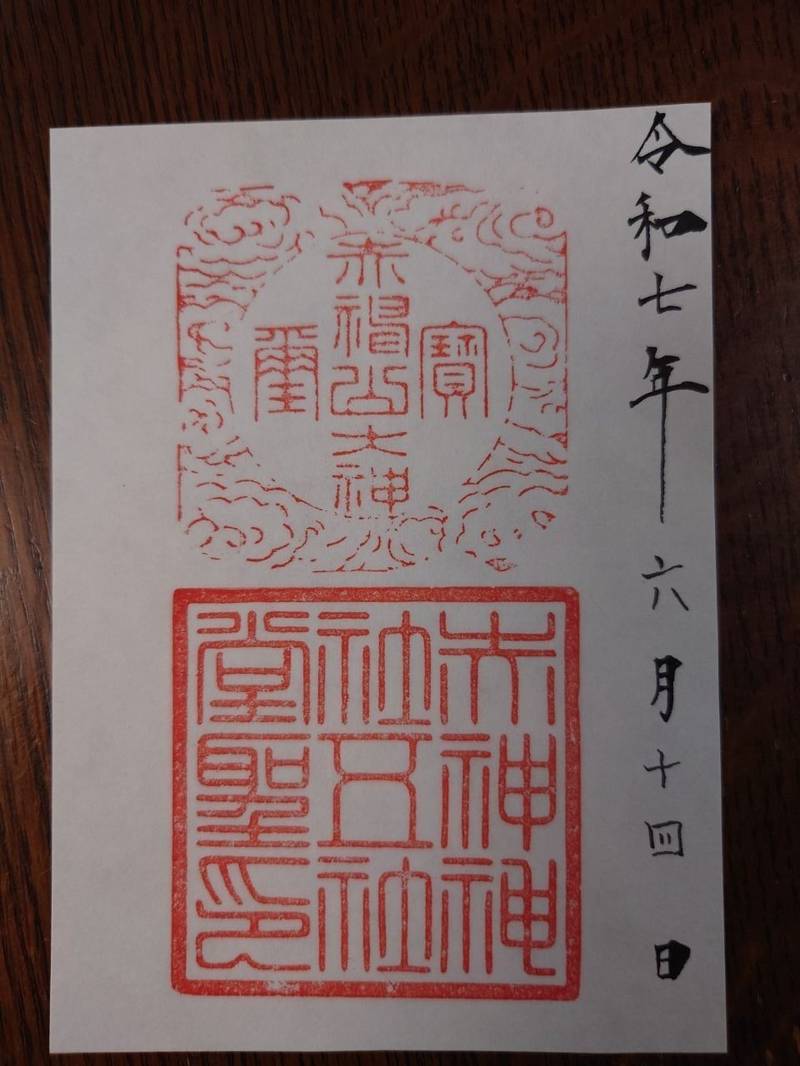 令和七年六月十四日
寶
赤山大神
璽
赤神神
社五社
堂聖印